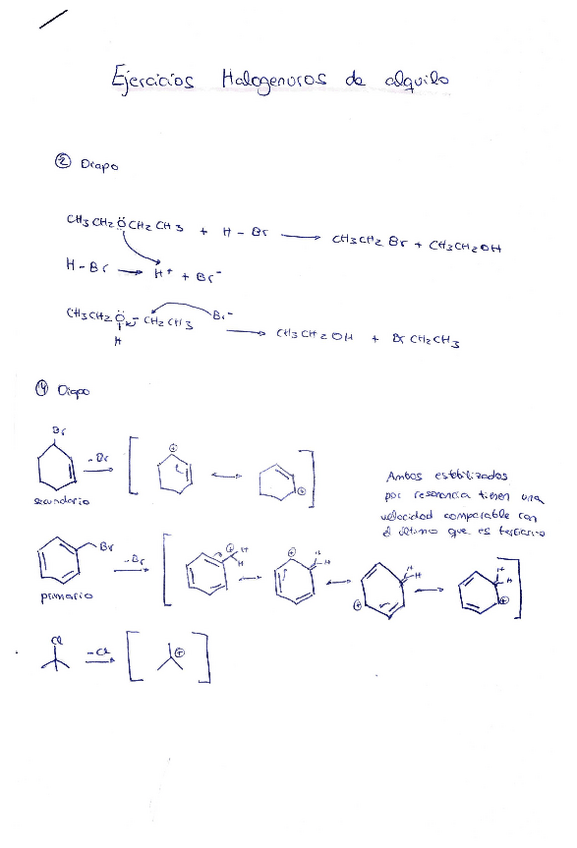 Ejercicios Halogenuros de alquilo
② Diapo
CH3CH2ÖCH2CH3 + H-Br → CH3CH2Br + CH3CH2OH
H-Br → H+ + Br-
CH3CH2Ö-CH2CH3 Br- → CH3CH2OH + BrCH2CH3
H
④ Diapo
Br
-Br
secundario
Ambos estabilizados
por resonancia tienen una
velocidad comparable con
el último que es terciario
Br -Br H H H H H H H H
primario
Cl
-Cl